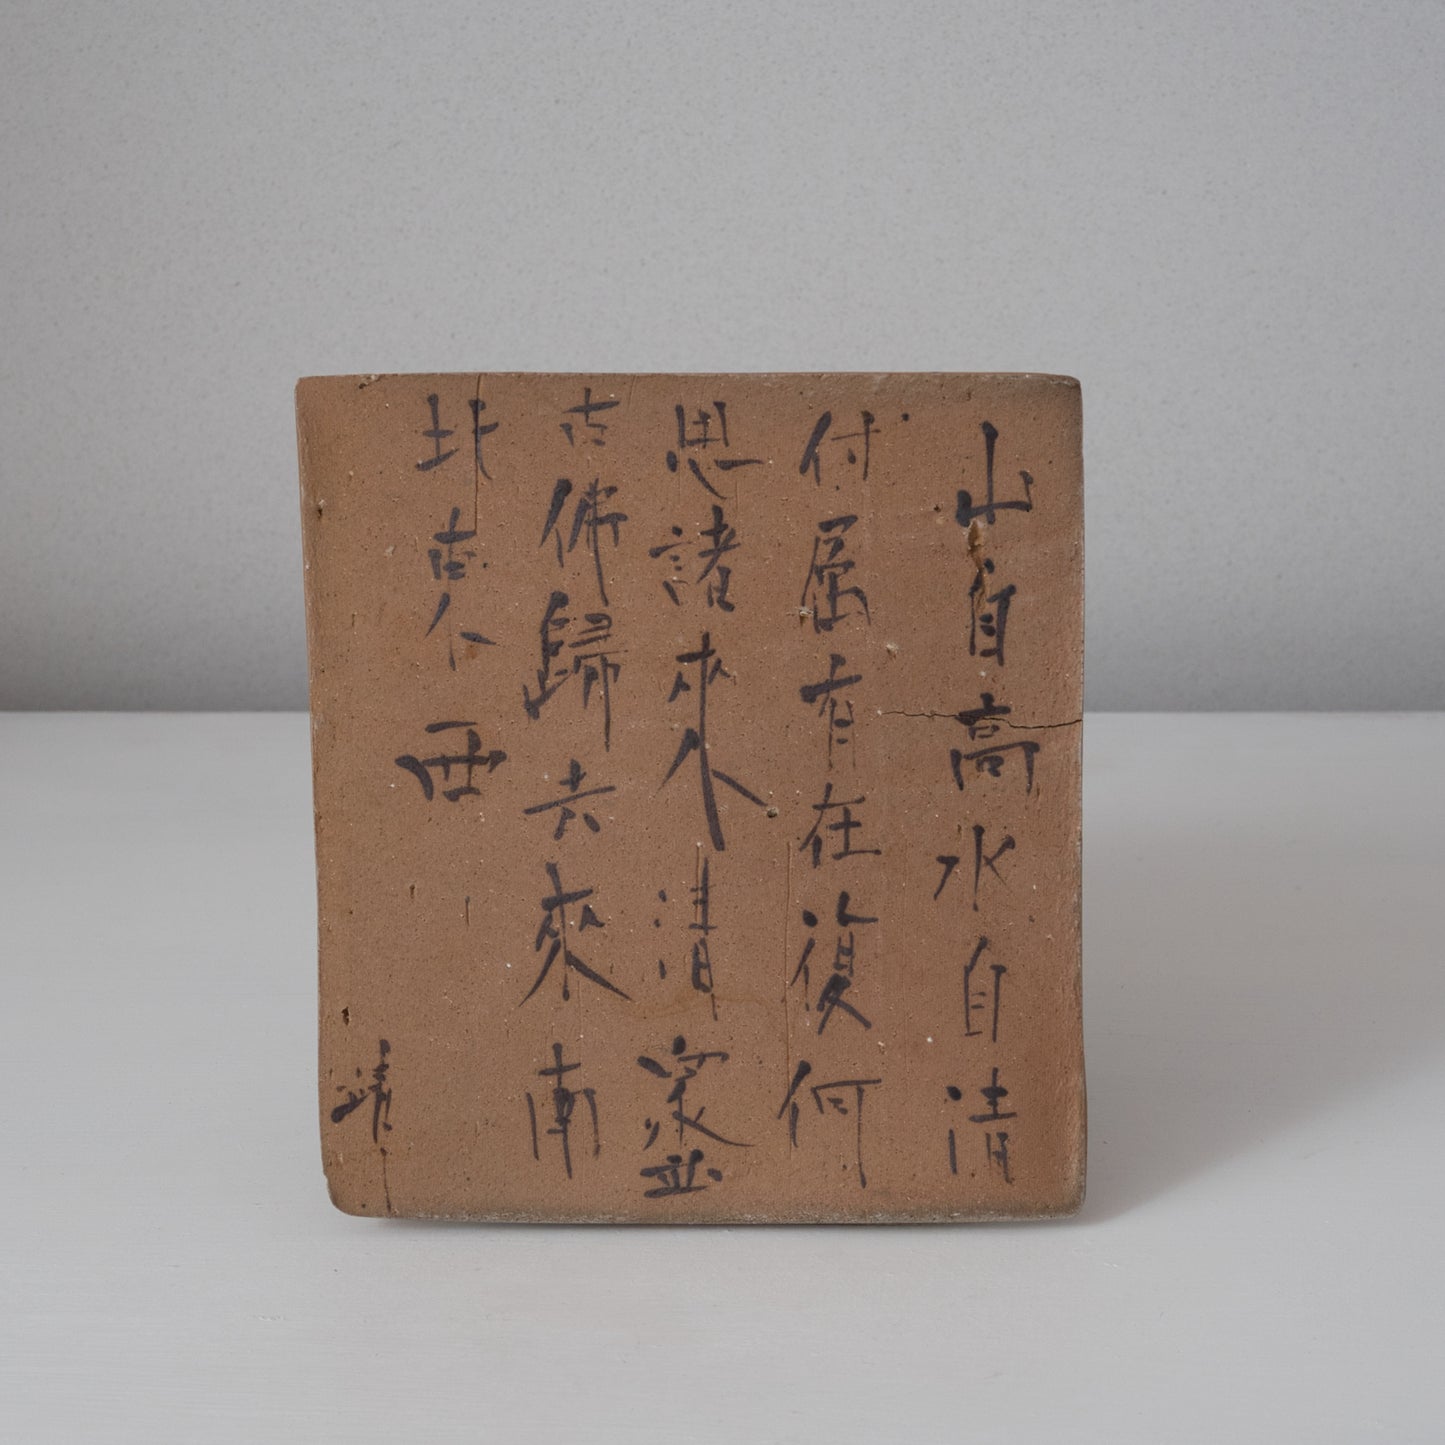 山自高水自清
付属有在復何
思諸來人清衆並
古佛歸去來南
北東人西
靖